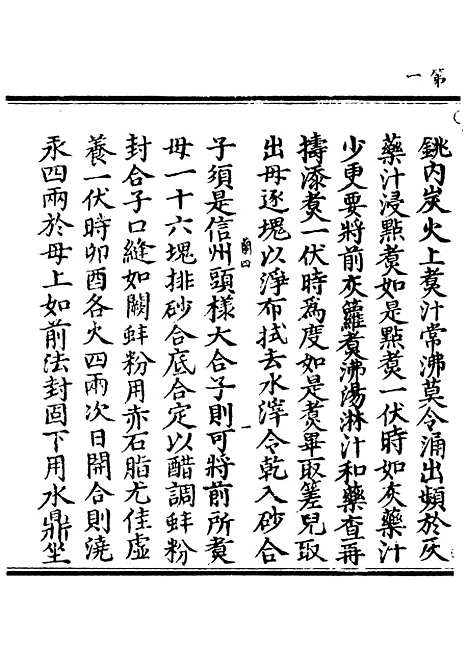 第一
銚内炭火上煑汁常沸莫令涌出頻於灰
藥汁浸點煑如是點煑一伏時如灰藥汁
少更要將前灰籮煑沸湯淋汁和藥查再
擣添煑一伏時爲度如是煑畢取䇪兒取
出母逐塊以淨布拭去水滓令乾入砂合
蘭四
子須是信州頭樣大合子則可將前所煑
母一十六塊排砂合底合定以醋調蚌粉
封合子口縫如闕蚌粉用赤石脂尤佳虛
養一伏時卯酉各火四兩次日開合則澆
汞四兩於母上如前法封固下用水鼎坐